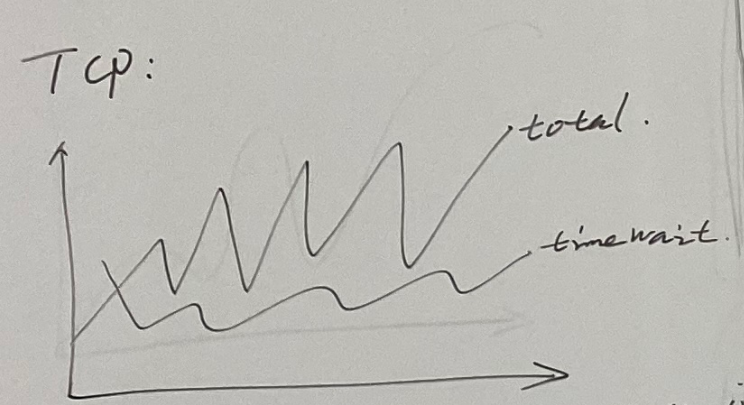 TCP:
total.
timewait.